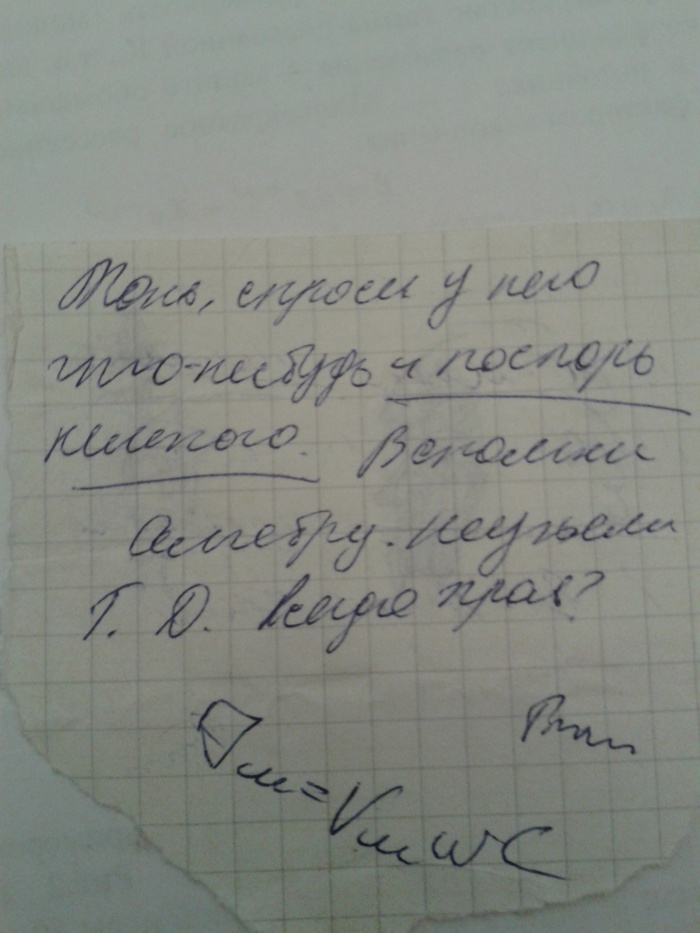 Тонь, спроси у него
что-нибудь и поспорь
немного. Вспомни
алгебру. неужели
Г. Д. всегда прав?
Jм=VмωC